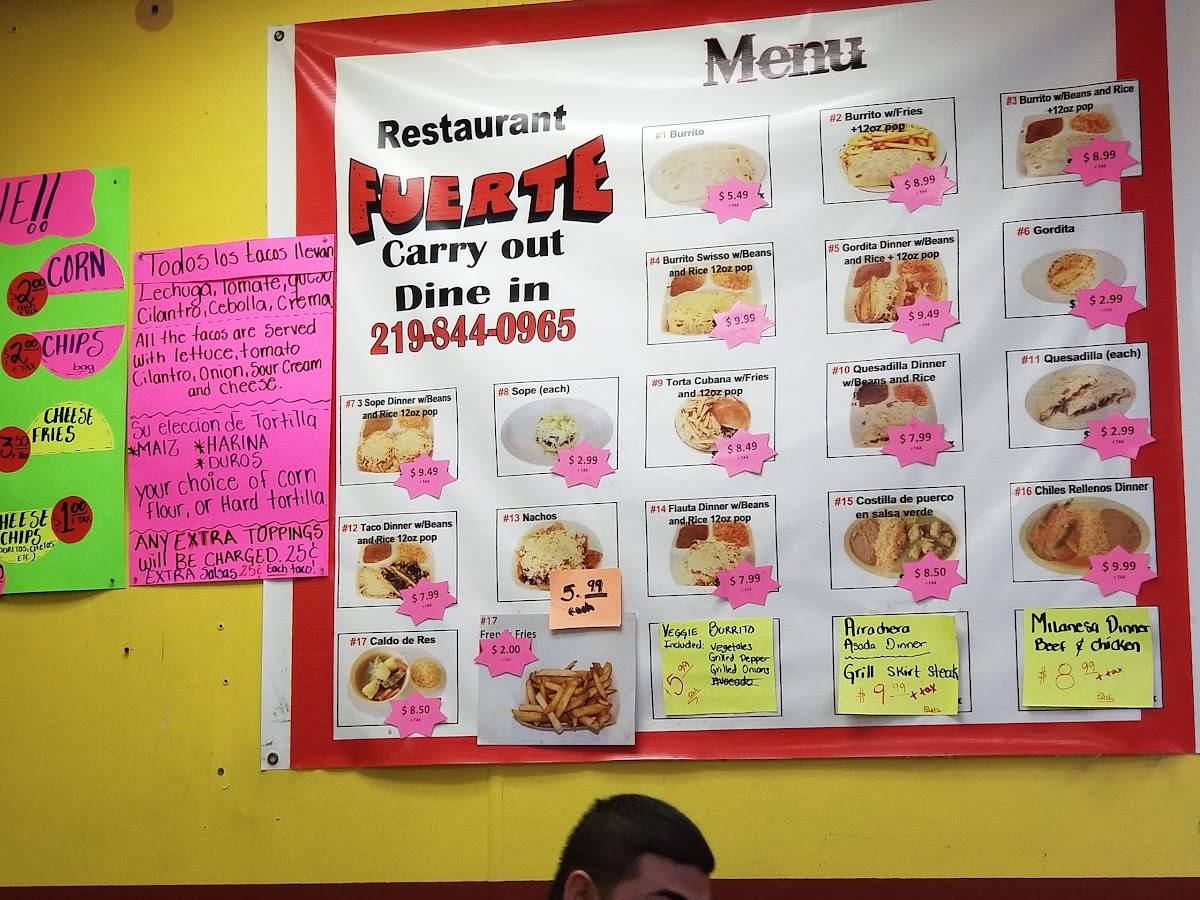 Menu
Restaurant
FUERTE
Carry out
Dine in
219-844-0965
#1 Burrito
$ 5.49
+ TAX
#2 Burrito w/Fries
+12oz pop
$ 8.99
+ TAX
#3 Burrito w/Beans and Rice
+12oz pop
$ 8.99
+ TAX
#4 Burrito Swisso w/Beans
and Rice 12oz pop
$ 9.99
+ TAX
#5 Gordita Dinner w/Beans
and Rice + 12oz pop
$ 9.49
+ TAX
#6 Gordita
$ 2.99
+ TAX
#7 3 Sope Dinner w/Beans
and Rice 12oz pop
$ 9.49
+ TAX
#8 Sope (each)
$ 2.99
+ TAX
#9 Torta Cubana w/Fries
and 12oz pop
$ 8.49
+ TAX
#10 Quesadilla Dinner
w/Beans and Rice
$ 7.99
+ TAX
#11 Quesadilla (each)
$ 2.99
+ TAX
#12 Taco Dinner w/Beans
and Rice 12oz pop
$ 7.99
+ TAX
#13 Nachos
5.99
each
#14 Flauta Dinner w/Beans
and Rice 12oz pop
$ 7.99
+ TAX
#15 Costilla de puerco
en salsa verde
$ 8.50
+ TAX
#16 Chiles Rellenos Dinner
$ 9.99
+ TAX
#17 Caldo de Res
$ 8.50
+ TAX
#17
French Fries
$ 2.00
+ TAX
VEGGIE BURRITO
Included: Vegetales
Grilled Pepper
Grilled Onions
Avocado
5.99
Arrachera
Asada Dinner
Grill Skirt Steak
$ 9.99 + tax
Milanesa Dinner
Beef & Chicken
$ 8.99 + tax
Each
Todos los tacos llevan
Lechuga, Tomate, queso
Cilantro, Cebolla, Crema
All the tacos are served
with lettuce, tomato
Cilantro, Onion, Sour Cream
and cheese.
Su eleccion de Tortilla
*MAIZ *HARINA
*DUROS
your choice of corn
flour, or Hard tortilla
ANY EXTRA TOPPINGS
will BE CHARGED. 25¢
EXTRA Salsas 25¢ Each taco!
E!!
CORN
2.00
CHIPS
bag
2.00
+ TAX
CHEESE
FRIES
3.50
+ TAX
CHEESE
CHIPS
DORITOS, CHETOS
ETC)
$1.00
+ TAX